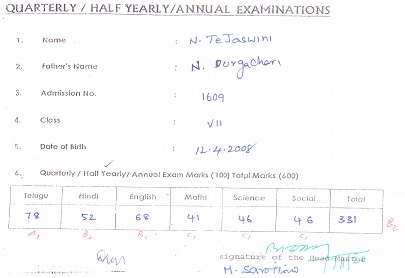 QUARTERLY / HALF YEARLY/ANNUAL EXAMINATIONS
1. Name : N. Tejaswini
2. Father's Name : N. Durgachari
3. Admission No. : 1609
4. Class : VII
5. Date of Birth : 12.4.2008
6. Quarterly / Half Yearly/ Annual Exam Marks (100) Total Marks (600)
Telugu Hindi English Maths Science Social Total
78 52 68 41 46 46 331
A1 B2 B1 C1 C1 C1 B2
signature of the Head Master